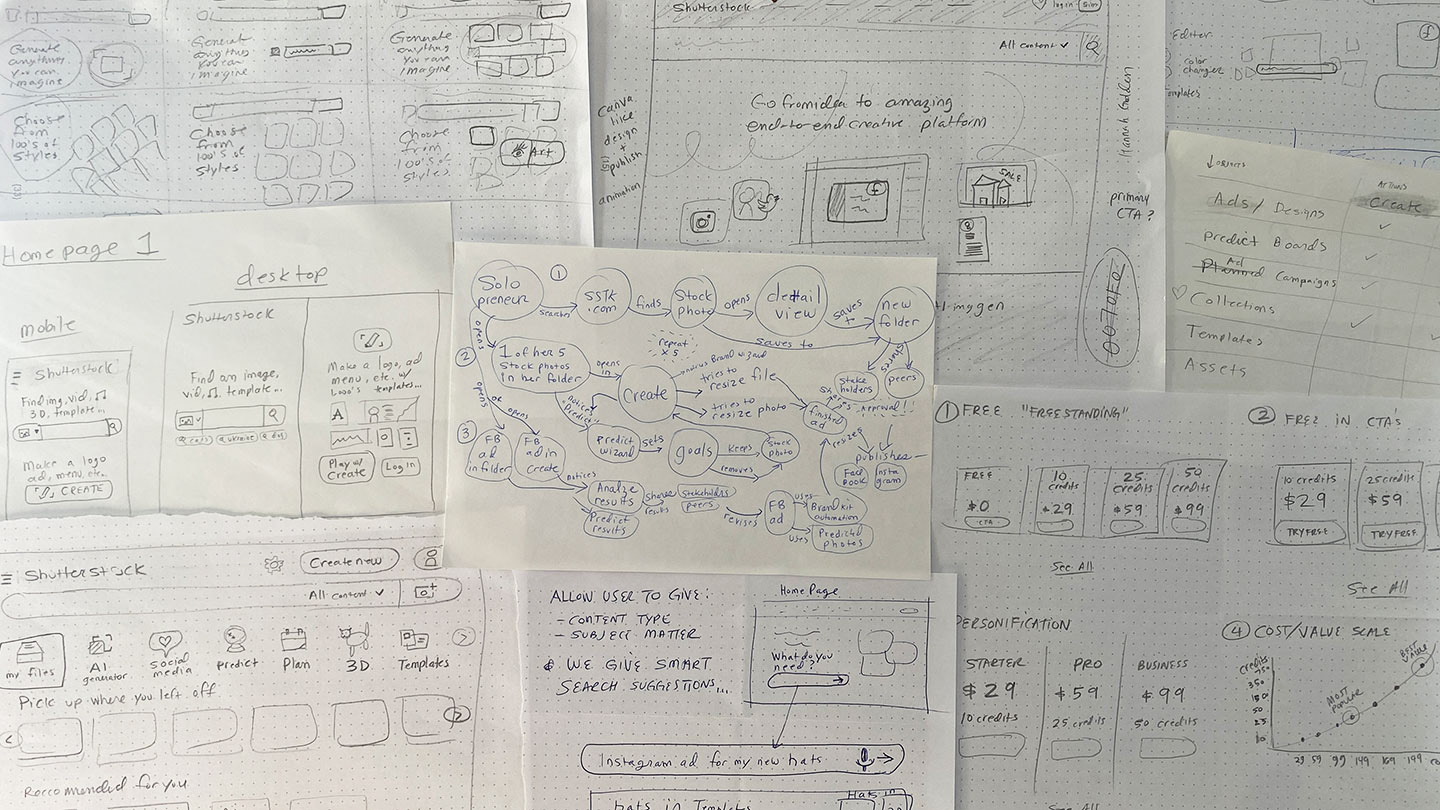 Generate
anything
you can
imagine
Generate
anything
you can
imagine
Generate
anything
you can
imagine
Choose
from
100's of
styles
Choose
from
100's of
styles
Choose
from
100's of
styles
Art
Shutterstock
log in
All content
Canva
like
design
+
publish
animation
Go from idea to amazing
end-to-end creative platform
SALE
primary
CTA?
Editor
color
changer
Templates
Objects
Actions
Ads/Designs
Create
Predict Boards
Ad
Planned Campaigns
Collections
Templates
Assets
Homepage 1
mobile
desktop
Shutterstock
Find img, vid,
3D, template...
Make a logo
ad, menu, etc.
CREATE
Shutterstock
Find an image,
vid, template...
Make a logo, ad
menu, etc. w/
1,000's templates...
A
Play w/
Create
Log in
1
Solo
preneur
search
SSTK
.com
finds
Stock
photo
opens
detail
view
saves
to
new
folder
saves to
opens
2
1 of her 5
Stock photos
in her folder
opens
in
repeat
x 5
Create
tries to
resize file
tries to
resize photo
shares
Stake
holders
peers
Approval!!
finished
ad
opens
or
opens
notices
"Predict"
3
FB
ad
in folder
FB
ad in
Create
Predict
wizard
sets
goals
keeps
Stock
photo
removes
resizes
publishes
Face
book
Insta
gram
notices
Analize
results
Predict
results
Shares
results
Stakeholders
peers
revises
FB
ad
uses
Brand kit
automation
uses
Predicted
photos
1 FREE "FREESTANDING"
FREE
$0
CTA
10
credits
$29
25
credits
$59
50
credits
$99
See All
2 FREE IN CTA'S
10 credits
$29
TRY FREE
25 credits
$59
TRY FREE
See All
Shutterstock
Create new
All content
my files
AI
generator
Social
media
Predict
Plan
3D
Templates
Pick up where you left off
Roccommended for you
ALLOW USER TO GIVE:
- CONTENT TYPE
- SUBJECT MATTER
& WE GIVE SMART
SEARCH SUGGESTIONS...
Home Page
What do you
need?
Instagram ad for my new hats
hats in Templates
Hats in
PERSONIFICATION
STARTER
$29
10 credits
PRO
$59
25 credits
BUSINESS
$99
50 credits
See All
4 COST/VALUE SCALE
Credits
750
350
150
50
25
10
MOST
POPULAR
BEST
VALUE
29 59 99 149 169 199